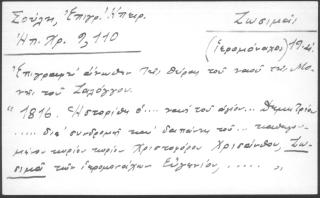 Σούλη, Ἐπιγρ. Ἠπειρ. Ζωσιμᾶς
Ἠπ. Χρ. 9, 110 (ἱερομόναχος) 19 αἰ.
Ἐπιγραφὴ ἄνωθεν τῆς θύρας τοῦ ναοῦ τῆς Μο-
νῆς τοῦ Ζαλόγγου.
"1816. Ἡστορίθη ὁ.... ναὸς τοῦ ἁγίου... Δημητρίου
..... διὰ συνδρομῆς καὶ δαπάνης τοῦ...
κυρίου κυρίου Χριστοφόρου Χρισάνθου, Ζω-
σιμᾶ τῶν ἱερομονάχων Εὐγενίου, ..... "